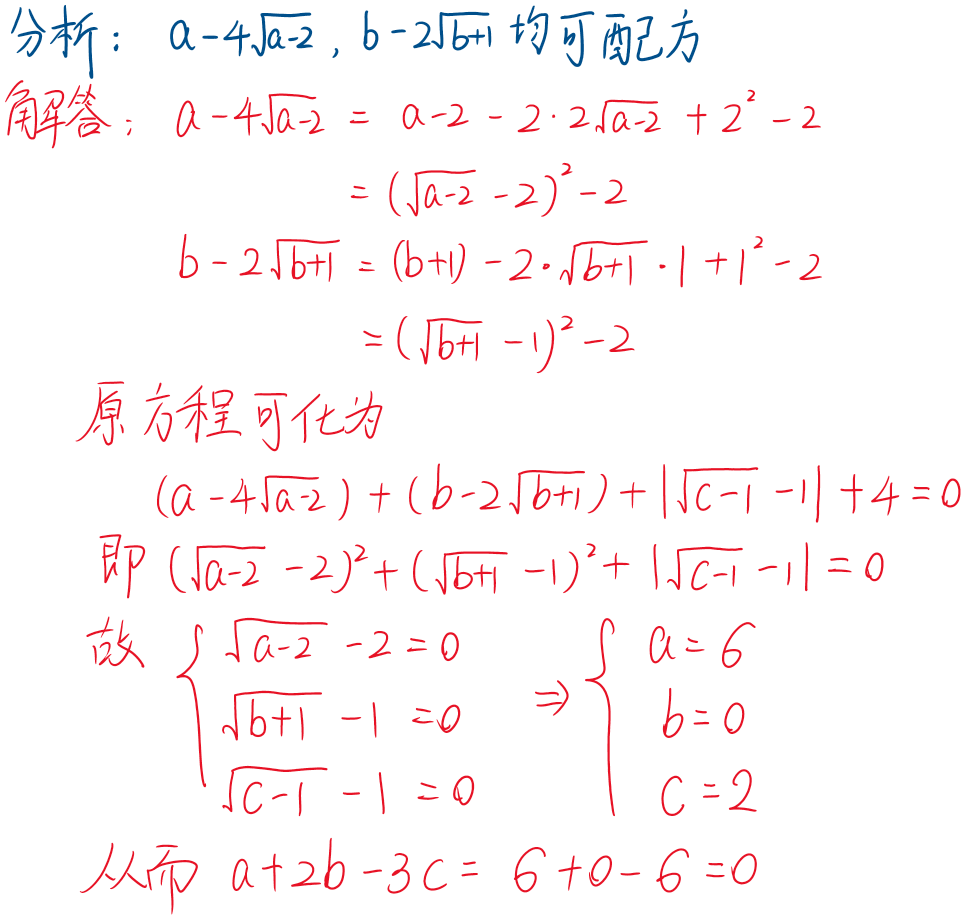 分析： a-4√(a-2) , b-2√(b+1) 均可配方
解答： a-4√(a-2) = a-2 - 2·2√(a-2) + 2² - 2
= (√(a-2) - 2)² - 2
b-2√(b+1) = (b+1) - 2·√(b+1)·1 + 1² - 2
= (√(b+1) - 1)² - 2
原方程可化为
(a-4√(a-2)) + (b-2√(b+1)) + |√(c-1) - 1| + 4 = 0
即 (√(a-2) - 2)² + (√(b+1) - 1)² + |√(c-1) - 1| = 0
故 { √(a-2) - 2 = 0 ⇒ { a = 6
√(b+1) - 1 = 0 b = 0
√(c-1) - 1 = 0 c = 2
从而 a+2b-3c = 6+0-6 = 0